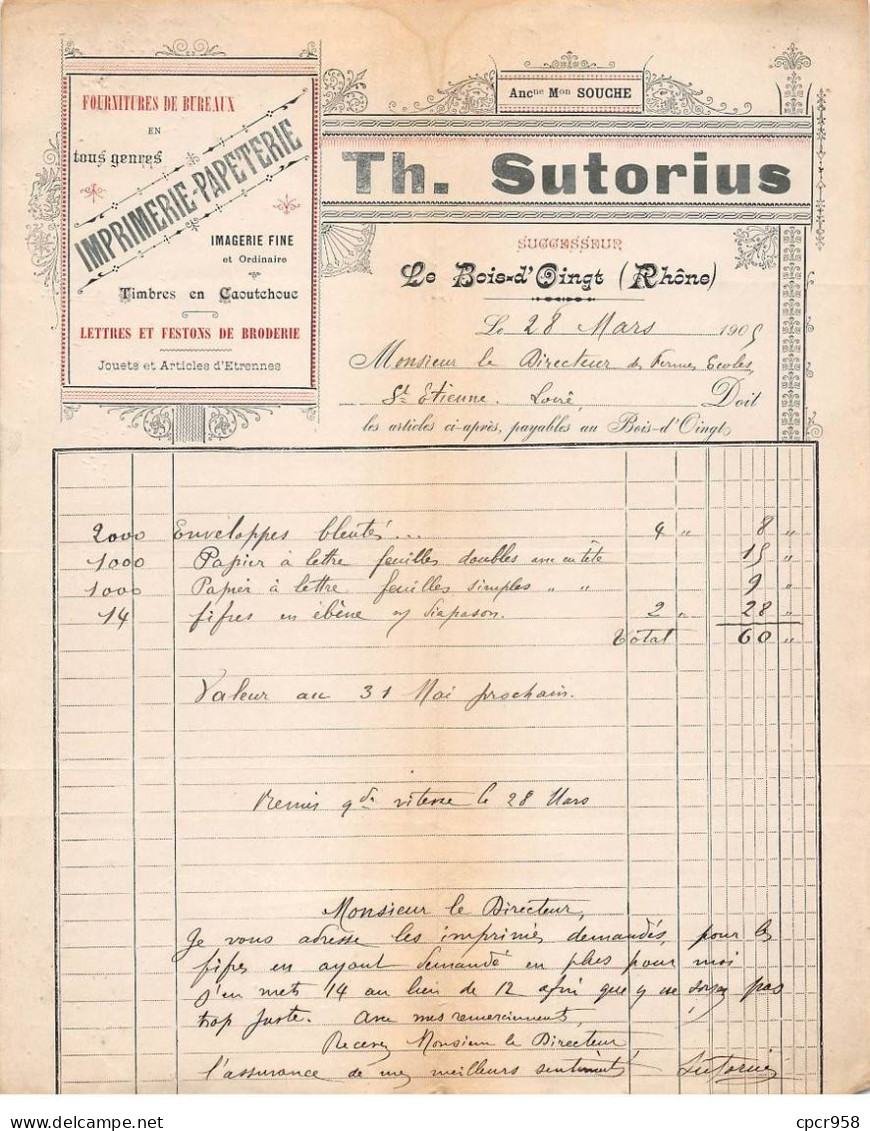 FOURNITURES DE BUREAUX
EN
tous genres
IMPRIMERIE-PAPETERIE
IMAGERIE FINE
et Ordinaire
Timbres en Caoutchouc
LETTRES ET FESTONS DE BRODERIE
Jouets et Articles d'Etrennes
Anc^ne M^on SOUCHE
Th. Sutorius
SUCCESSEUR
Le Bois-d'Oingt (Rhône)
Le 28 Mars 1905
Monsieur le Directeur des Fermes Ecoles
St Etienne. Loire, Doit
les articles ci-après, payables au Bois-d'Oingt
2000 Enveloppes bleutés... 4 " 8 "
1000 Papier à lettre feuilles doubles avec entête 15 "
1000 Papier à lettre feuilles simples " " 9 "
14 fifres en ébène diapason. 2 " 28 "
Total 60 "
Valeur au 31 Mai prochain.
Remis gde vitesse le 28 Mars
Monsieur le Directeur,
Je vous adresse les imprimés demandés, pour les
fifres en ayant demandé en plus pour moi
j'en mets 14 au lieu de 12 afin que y ne soyez pas
trop juste. Avec mes remerciements,
Recevez Monsieur le Directeur
l'assurance de mes meilleurs sentiments Sutorius
www.delcampe.net
cpcr958